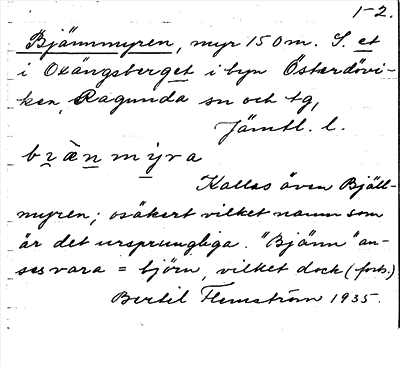 1-2.
Bjännmyren, myr 150m. S. et
i Oxängsberget i byn Österdövi-
ken, Ragunda sn och tg,
Jämtl. l.
bɩ̀änmyra
Kallas även Bjäll-
myren; osäkert vilket namn som
är det ursprungliga. "Bjänn" an-
ses vara = björn, vilket dock (forts.)
Bertil Flemström 1935.